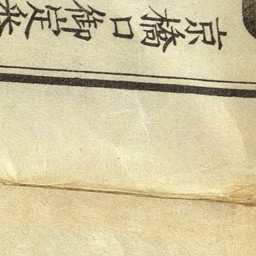 京橋口御定